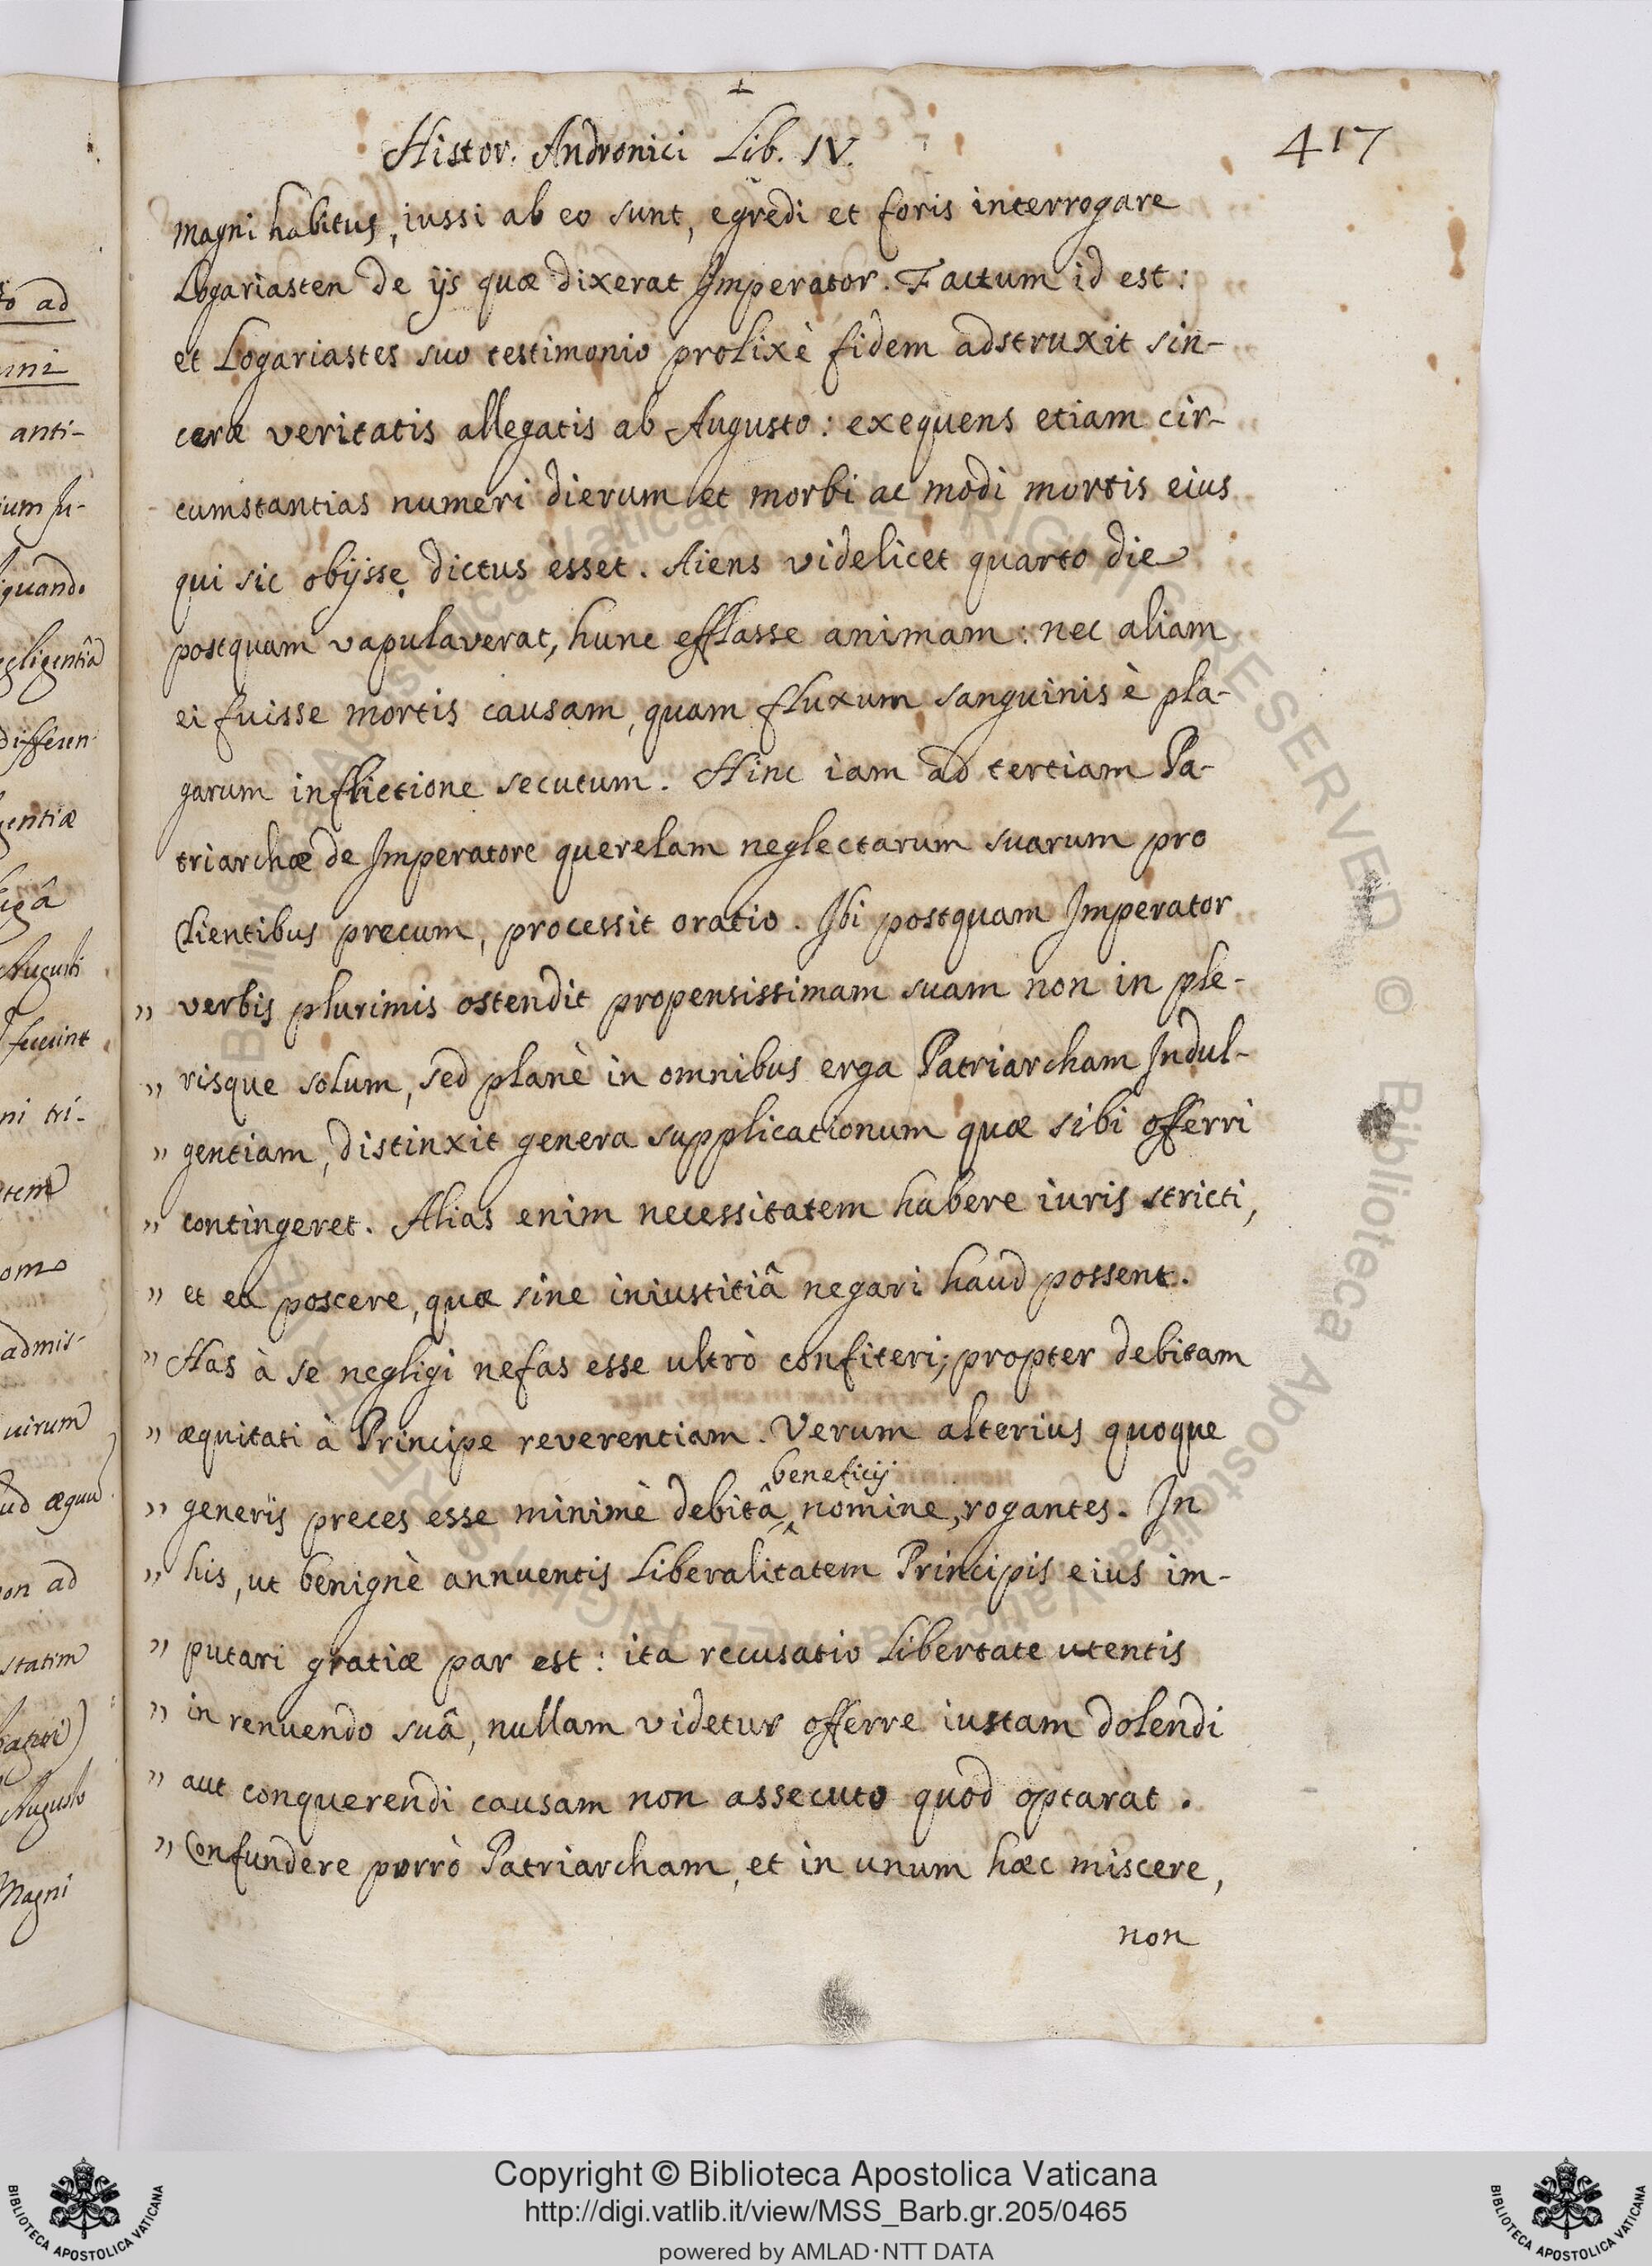 Histor. Andronici Lib. IV.
417
magni habitus, iussi ab eo sunt, egredi et foris interrogare
Logariasten de ijs quæ dixerat Imperator. Factum id est:
et Logariastes suo testimonio prolixè fidem adstruxit sin-
ceræ veritatis allegatis ab Augusto: exequens etiam cir-
cumstantias numeri dierum et morbi ac modi mortis eius
qui sic obijsse dictus esset. Aiens videlicet quarto die
postquam vapulaverat, hunc efflasse animam: nec aliam
ei fuisse mortis causam, quam fluxum sanguinis è pla-
garum inflictione secutum. Hinc iam ad tertiam Pa-
triarchæ de Imperatore querelam neglectarum suarum pro
clientibus precum, processit oratio. Ibi postquam Imperator
" verbis plurimis ostendit propensissimam suam non in ple-
" risque solum, sed planè in omnibus erga Patriarcham Indul-
" gentiam, distinxit genera supplicationum quæ sibi offerri
" contingeret. Alias enim necessitatem habere iuris stricti,
" et ea poscere, quæ sine iniustitiâ negari haud possent.
" Has à se negligi nefas esse ultrò confiteri; propter debitam
" æquitati à Principe reverentiam. Verum alterius quoque
beneficij
" generis preces esse minimè debitâ nomine, rogantes. In
" his, ut benignè annuentis Liberalitatem Principis eius im-
" putari gratiæ par est: ita recusatio Libertate utentis
" in renuendo suâ, nullam videtur offerre iustam dolendi
" aut conquerendi causam non assecuto quod optarat.
" Confundere porrò Patriarcham, et in unum hæc miscere,
non
to ad
anti-
quando
negligentiâ
differen
gentiæ
Augusti
fuerint
ni tri-
admis-
uirum
on ad
statim
Augusto
Magni
Copyright © Biblioteca Apostolica Vaticana
http://digi.vatlib.it/view/MSS_Barb.gr.205/0465
powered by AMLAD·NTT DATA
BIBLIOTECA APOSTOLICA VATICANA
BIBLIOTECA APOSTOLICA VATICANA